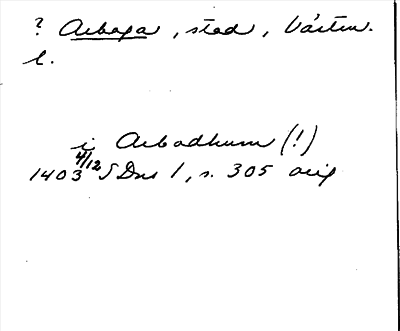 ? Arboga, stad, Västm.
l.
i Arbadhum (!)
1403 4/12 SDns 1, s. 305 orig